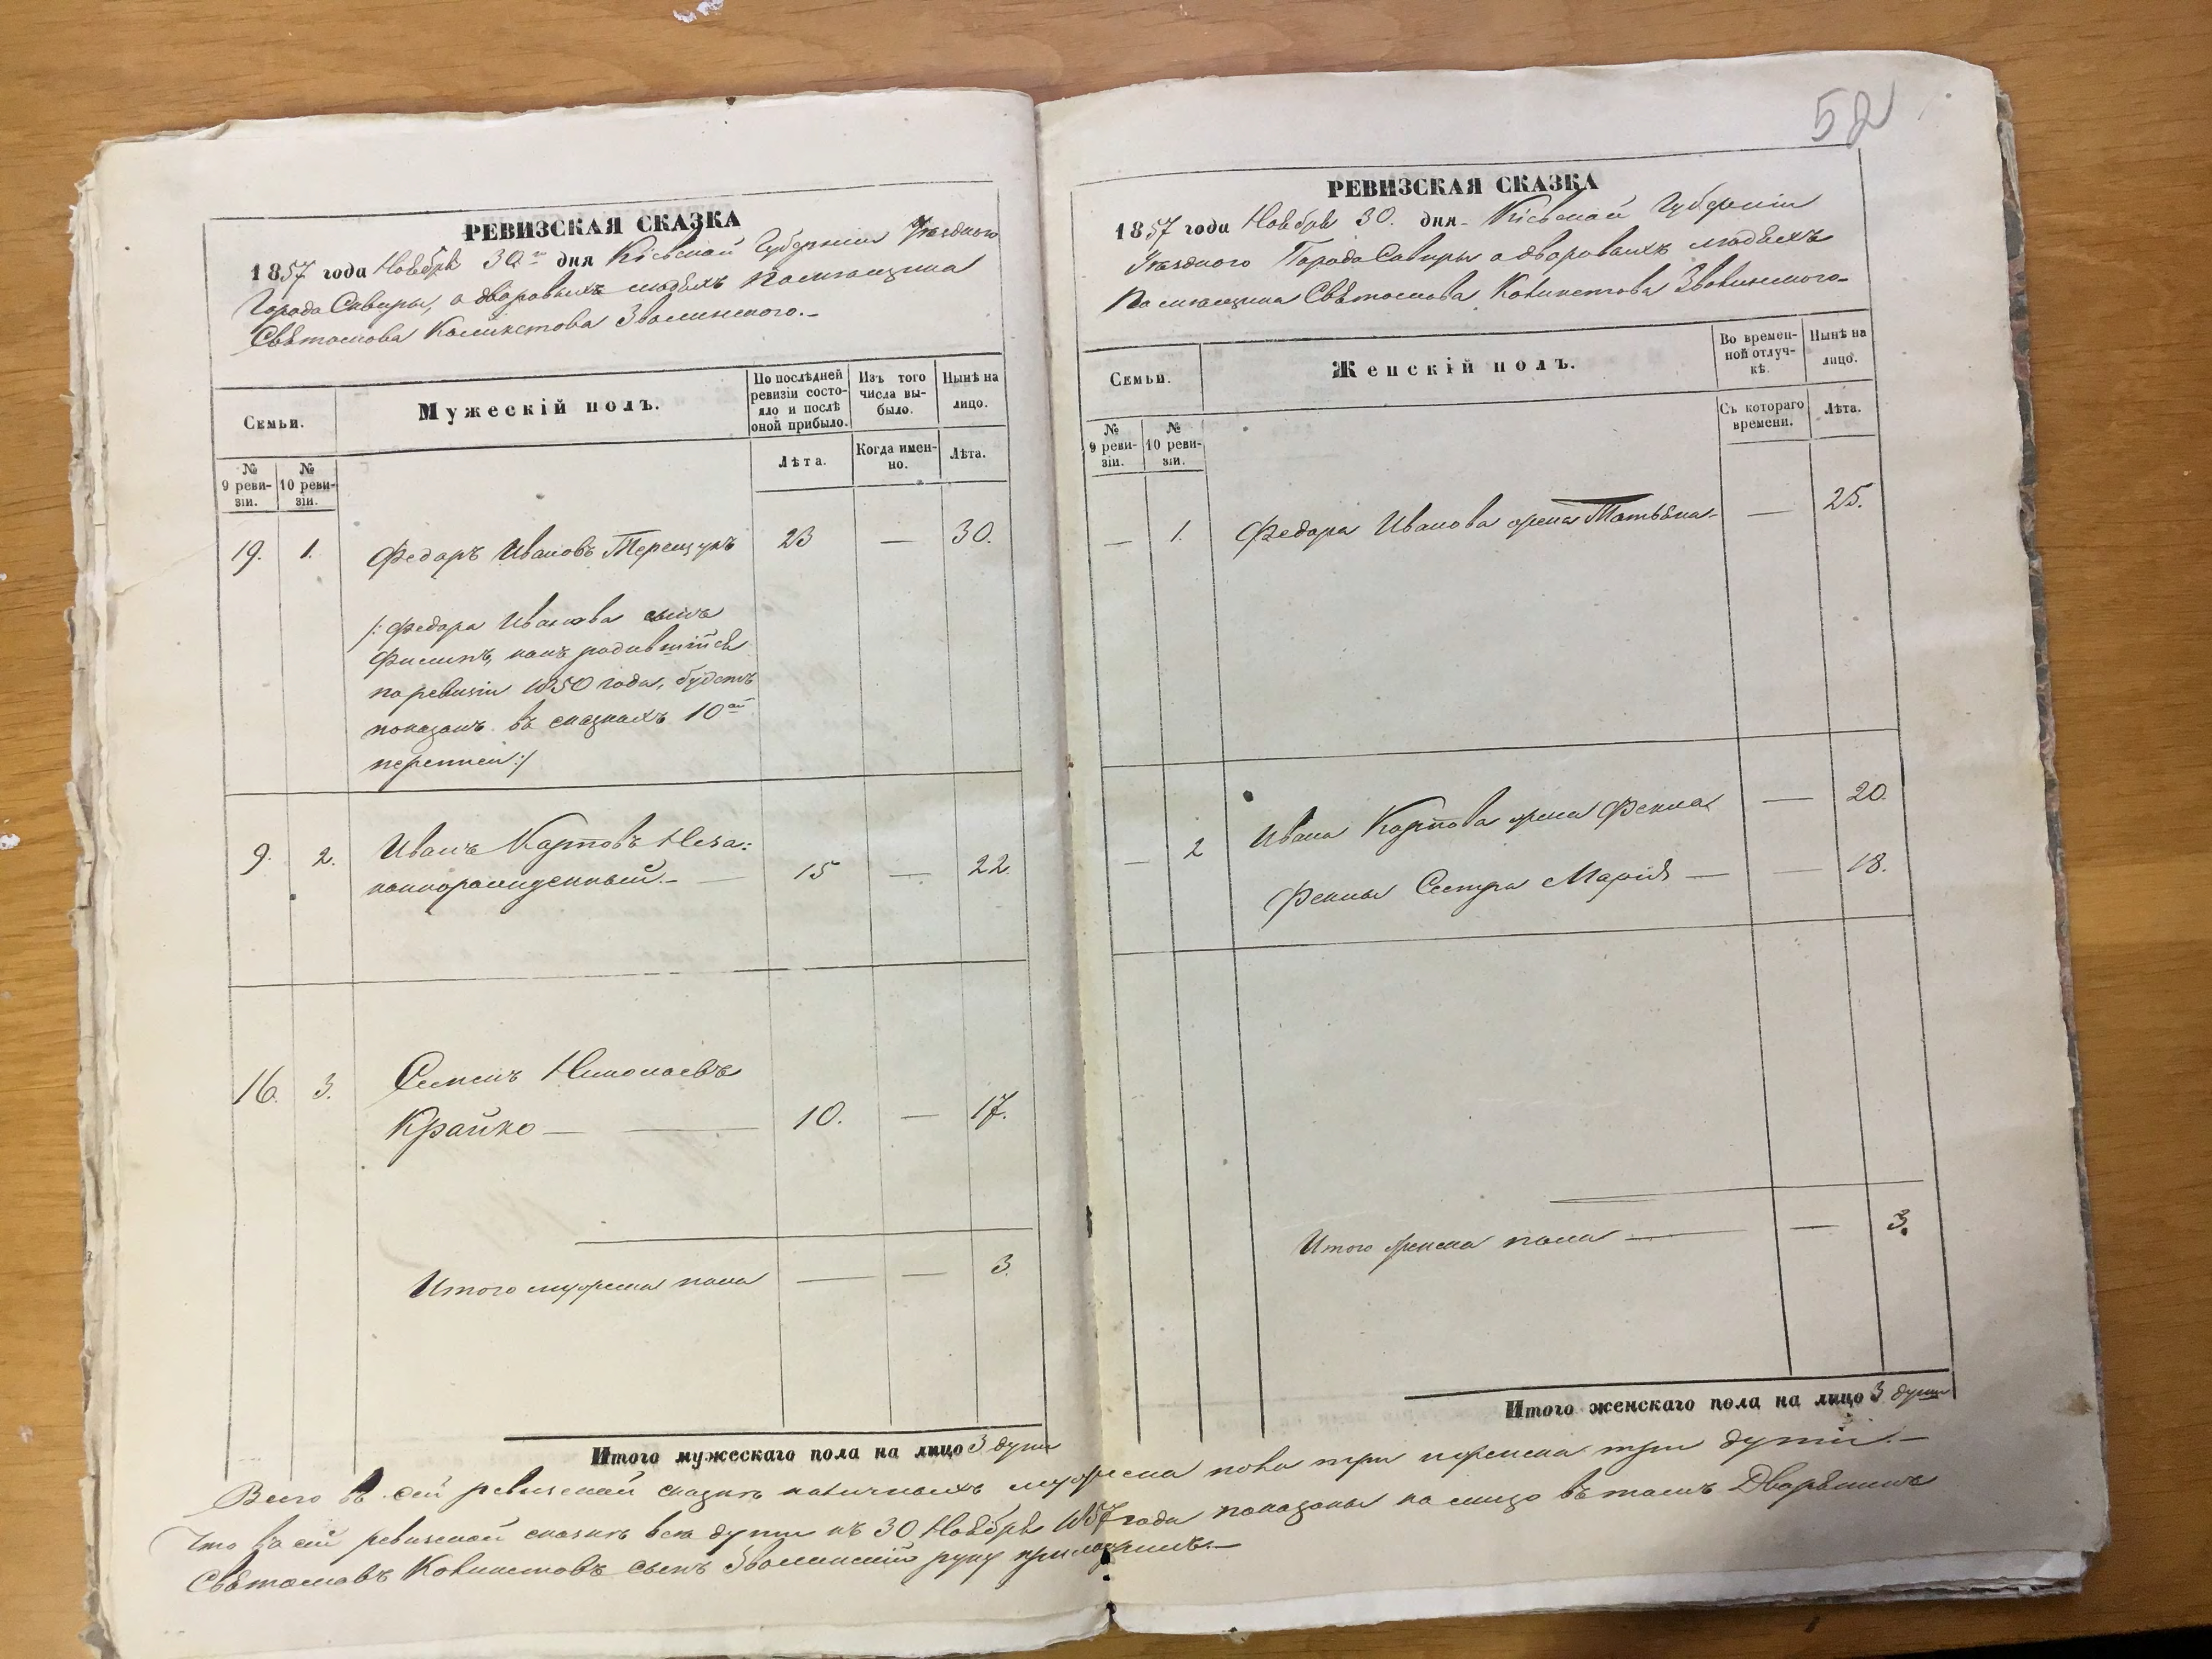 РЕВИЗСКАЯ СКАЗКА
1857 года Ноября 30го дня Кіевской Губерніи Уѣзднаго
Города Сквиры, о дворовыхъ людяхъ помѣщика
Свѣтослова Каликстова Зволинского.-
Семьи.
Мужескій полъ.
По послѣдней ревизіи состояло и послѣ оной прибыло.
Изъ того числа выбыло.
Нынѣ на лицо.
№ 9 ревизіи.
№ 10 ревизіи.
Лѣта.
Когда именно.
Лѣта.
19. 1. Федоръ Ивановъ Терещукъ 23 — 30.
/: Федора Иванова сынъ
Филипъ, какъ родившійся
по ревизіи 1850 года, будетъ
показанъ въ сказкахъ 10ой
переписи :/
9. 2. Иванъ Карповъ Неза:
коннорожденный.- — 15 — 22.
16. 3. Семенъ Николаевъ
Крайко — — 10. — 17.
Итого мужеска пола — — 3.
Итого мужескаго пола на лицо 3 души
58
РЕВИЗСКАЯ СКАЗКА
1857 года Ноября 30. дня - Кіевской Губерніи
Уѣзднаго Города Сквиры о дворовыхъ людяхъ
помѣщика Свѣтослова Каликстова Зволинского-
Семьи.
Женскій полъ.
Во временной отлучкѣ.
Нынѣ на лицо.
№ 9 ревизіи.
№ 10 ревизіи.
Съ котораго времени.
Лѣта.
— 1. Федора Иванова жена Татьяна- — 25.
— 2 Ивана Карпова жена Фекла — 20.
Феклы Сестра Марія — — 18.
Итого женска пола — — 3.
Итого женскаго пола на лицо 3 души
Всего въ сей ревизской сказкѣ наличныхъ мужеска пола три и женска три души.-
Что въ сей ревизской сказкѣ всѣ души къ 30 Ноября 1857 года показаны на лицо въ томъ Дворянинъ
Свѣтославъ Каликстовъ сынъ Зволинскій руку приложилъ.-